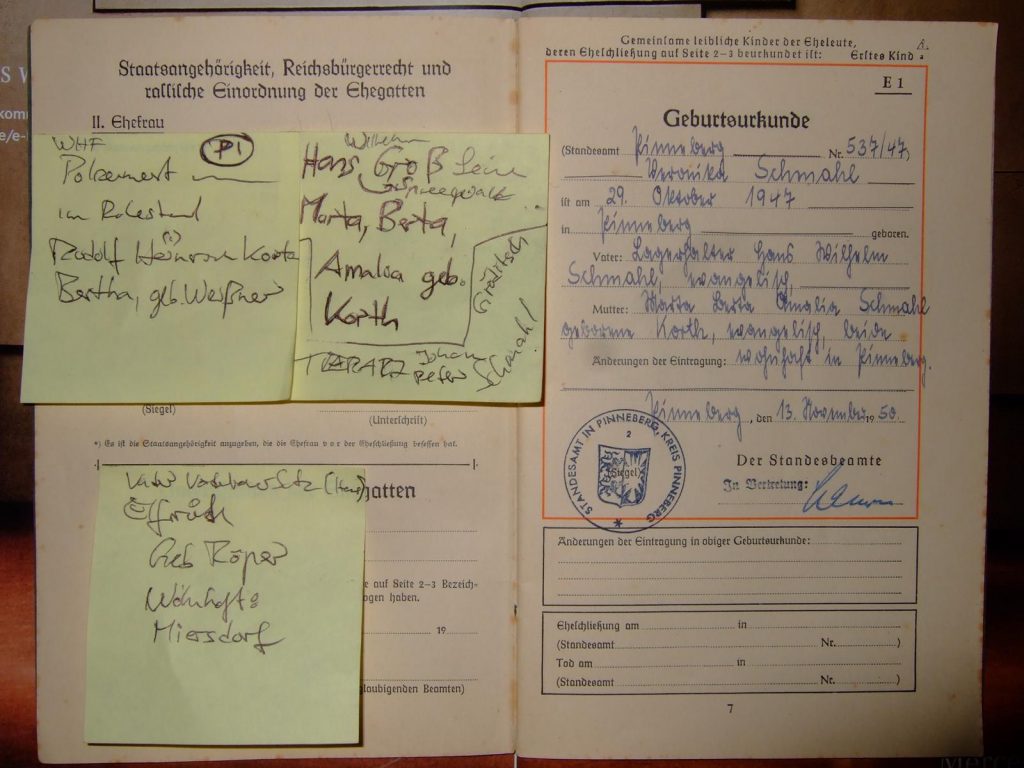 Staatsangehörigkeit, Reichsbürgerrecht und
rassische Einordnung der Ehegatten
II. Ehefrau
WHF
P1
im Ruhestand
Rudolf
Bertha, geb.
Wilhelm
Hans, Groß
Marta, Berta,
Amalia geb.
Korth
Johann
Peter
Schmahl
(Siegel)
(Unterschrift)
*) Es ist die Staatsangehörigkeit anzugeben, die die Ehefrau vor der Eheschließung besessen hat.
gatten
Geb Röper
Wohnhaft:
Miersdorf
e auf Seite 2–3 Bezeich-
ogen haben.
19
glaubigenden Beamten)
Gemeinsame leibliche Kinder der Eheleute,
deren Eheschließung auf Seite 2–3 beurkundet ist: Erstes Kind
E 1
Geburtsurkunde
(Standesamt Pinneberg Nr. 537/47)
Veronika Schmahl
ist am 29. Oktober 1947
in Pinneberg geboren.
Vater: Lagerhalter Hans Wilhelm
Schmahl, evangelisch,
Mutter: Marta Berta Amalia Schmahl
geborene Korth, evangelisch, beide
Änderungen der Eintragung: wohnhaft in Pinneberg.
Pinneberg, den 13. November 1950.
STANDESAMT IN PINNEBERG, KREIS PINNEBERG
2
(Siegel)
Der Standesbeamte
In Vertretung:
Änderungen der Eintragung in obiger Geburtsurkunde:
Eheschließung am in
(Standesamt Nr. )
Tod am in
(Standesamt Nr. )
7